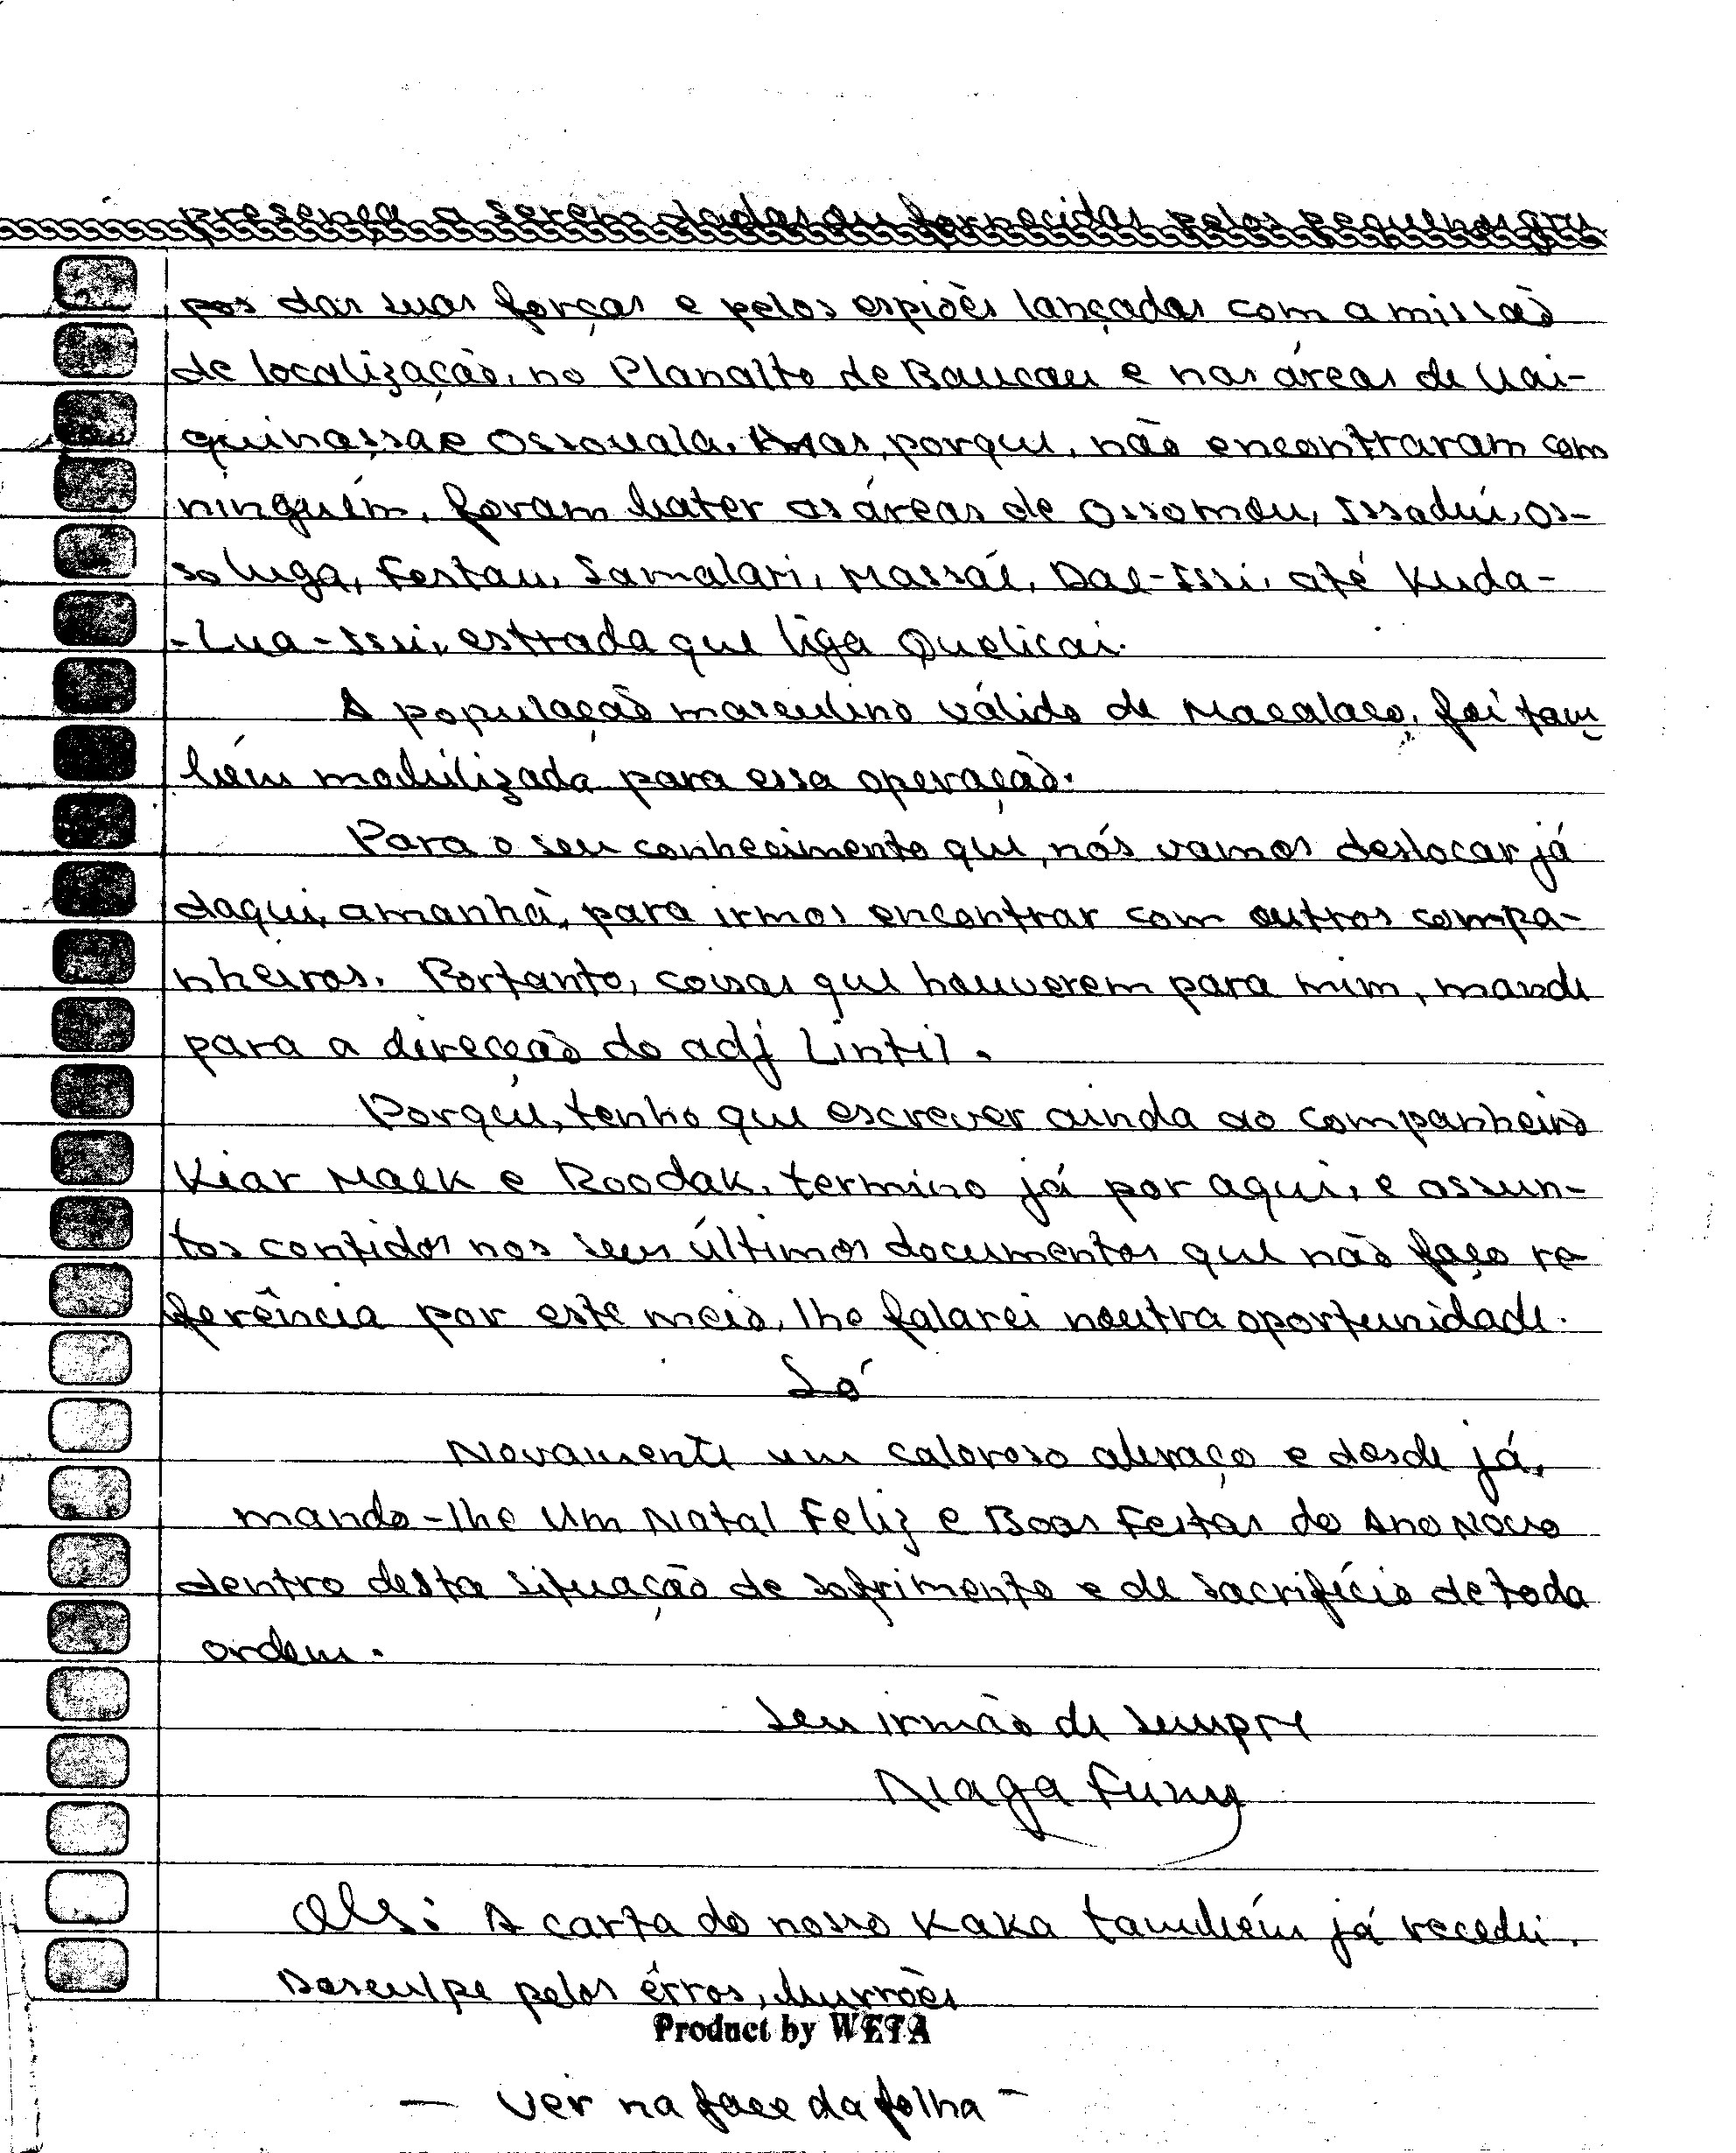 presença a serem dadas ou fornecidas pelos pequenos gru
pos das suas forças e pelos espiões lançadas com a missão
de localização, no Planalto de Baucau e nas áreas de Uai-
quinassa e Ossouala. Mas, porquê, não encontraram com
ninguém, foram bater as áreas de Ossomou, Issadui, Os-
soluga, Fostau, Samalari, Massáe, Dae-Issi, até Kuda-
-Lua-Issi, estrada que liga Quelicai.
A população masculino válido de Macalaco, foi tam
bém mobilizada para essa operação.
Para o seu conhecimento que, nós vamos deslocar já
daqui, amanhã, para irmos encontrar com outros compa-
nheiros. Portanto, coisas que houverem para mim, mande
para a direcção do adj Lintil.
Porquê, tenho que escrever ainda ao companheiro
Kiar Maek e Roodak, termino já por aqui, e assun-
tos contidos nos seus últimos documentos que não faço re
ferência por este meio, lhe falarei noutra oportunidade.
Só
Novamente um caloroso abraço e desde já,
mando-lhe Um Natal Feliz e Boas Festas do Ano Novo
dentro desta situação de sofrimento e de sacrifício de toda
ordem.
Seu irmão de sempre
Alaga Funy
Obs: A carta do nosso Kaka também já recebi.
Desculpe pelos êrros, burrões
Product by WETA
— Ver na face da folha —